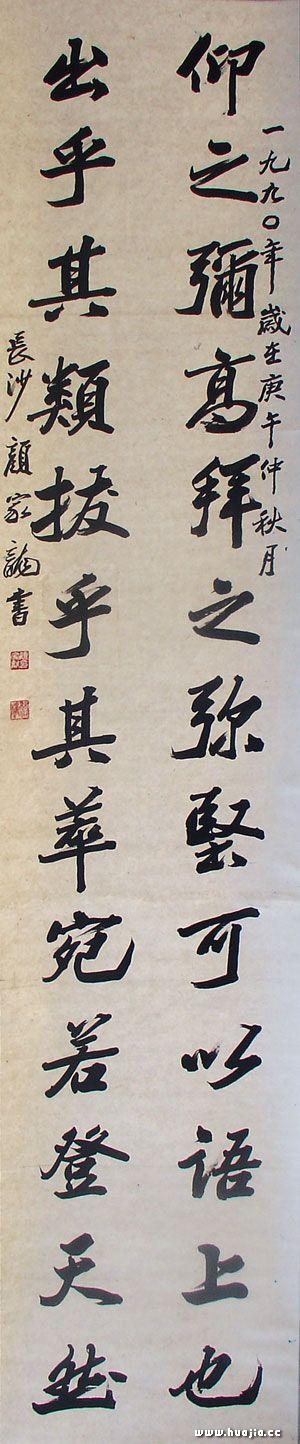 一九九〇年歲在庚午仲秋月
仰之彌高拜之弥堅可以語上也
出乎其類拔乎其萃宛若登天然
長沙顏家龍書
www.huajia.cc